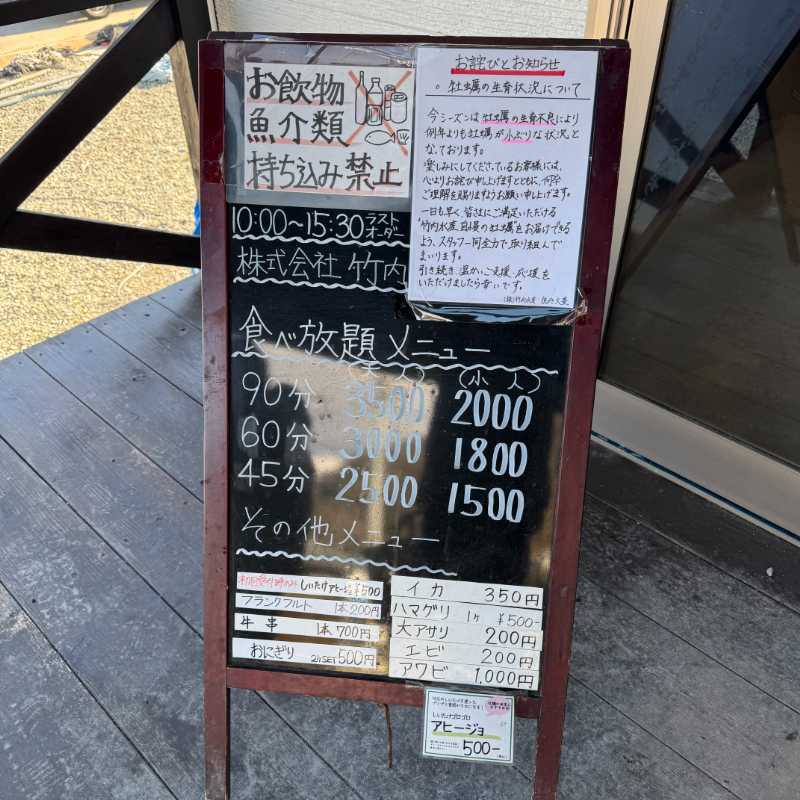 お飲物
魚介類
持ち込み禁止
お詫びとお知らせ
。牡蠣の生育状況について
今シーズンは牡蠣の生育不良により
例年よりも牡蠣が小ぶりな状況と
なっております。
楽しみにしてくださっているお客様には、
心よりお詫び申し上げますともに、何卒
ご理解を賜りますようお願い申し上げます。
一日も早く皆さまにご満足いただける
竹内水産自慢の牡蠣をお届けできる
よう、スタッフ一同全力で取り組んで
まいります。
引き続き、温かいご支援、応援を
いただけましたら幸いです。
10:00〜15:30 ラストオーダー
株式会社 竹内
食べ放題メニュー
(大人) (小人)
90分 3500 2000
60分 3000 1800
45分 2500 1500
その他メニュー
しいたけアヒージョ ¥500
フランクフルト 1本200円
牛串 1本700円
おにぎり 2ヶSET 500円
イカ 350円
ハマグリ 1ヶ ¥500-
大アサリ 200円
エビ 200円
アワビ 1,000円
しいたけゴロゴロ
アヒージョ
500-